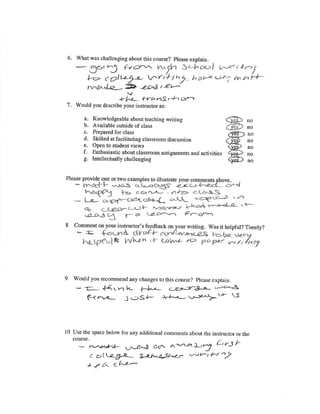 6. What was challenging about this course? Please explain.
- going from high school writing
to college writing, however matt
made easier
the transition
7. Would you describe your instructor as:
a. Knowledgeable about teaching writing yes no
b. Available outside of class yes no
c. Prepared for class yes no
d. Skilled at facilitating classroom discussion yes no
e. Open to student views yes no
f. Enthusiastic about classroom assignments and activities yes no
g. Intellectually challenging yes no
Please provide one or two examples to illustrate your comments above.
- matt was always excited and
happy to come into class
- he approached all topics in
a clear-cut manner that made it
easy to learn from
8 Comment on your instructor's feedback on your writing. Was it helpful? Timely?
- I found draft conferences to be very
helpful when it came to paper writing
9 Would you recommend any changes to this course? Please explain.
- I think the course was
fine just the way it is
10 Use the space below for any additional comments about the instructor or the
course.
- matt was an amazing first
college semester writing
teacher